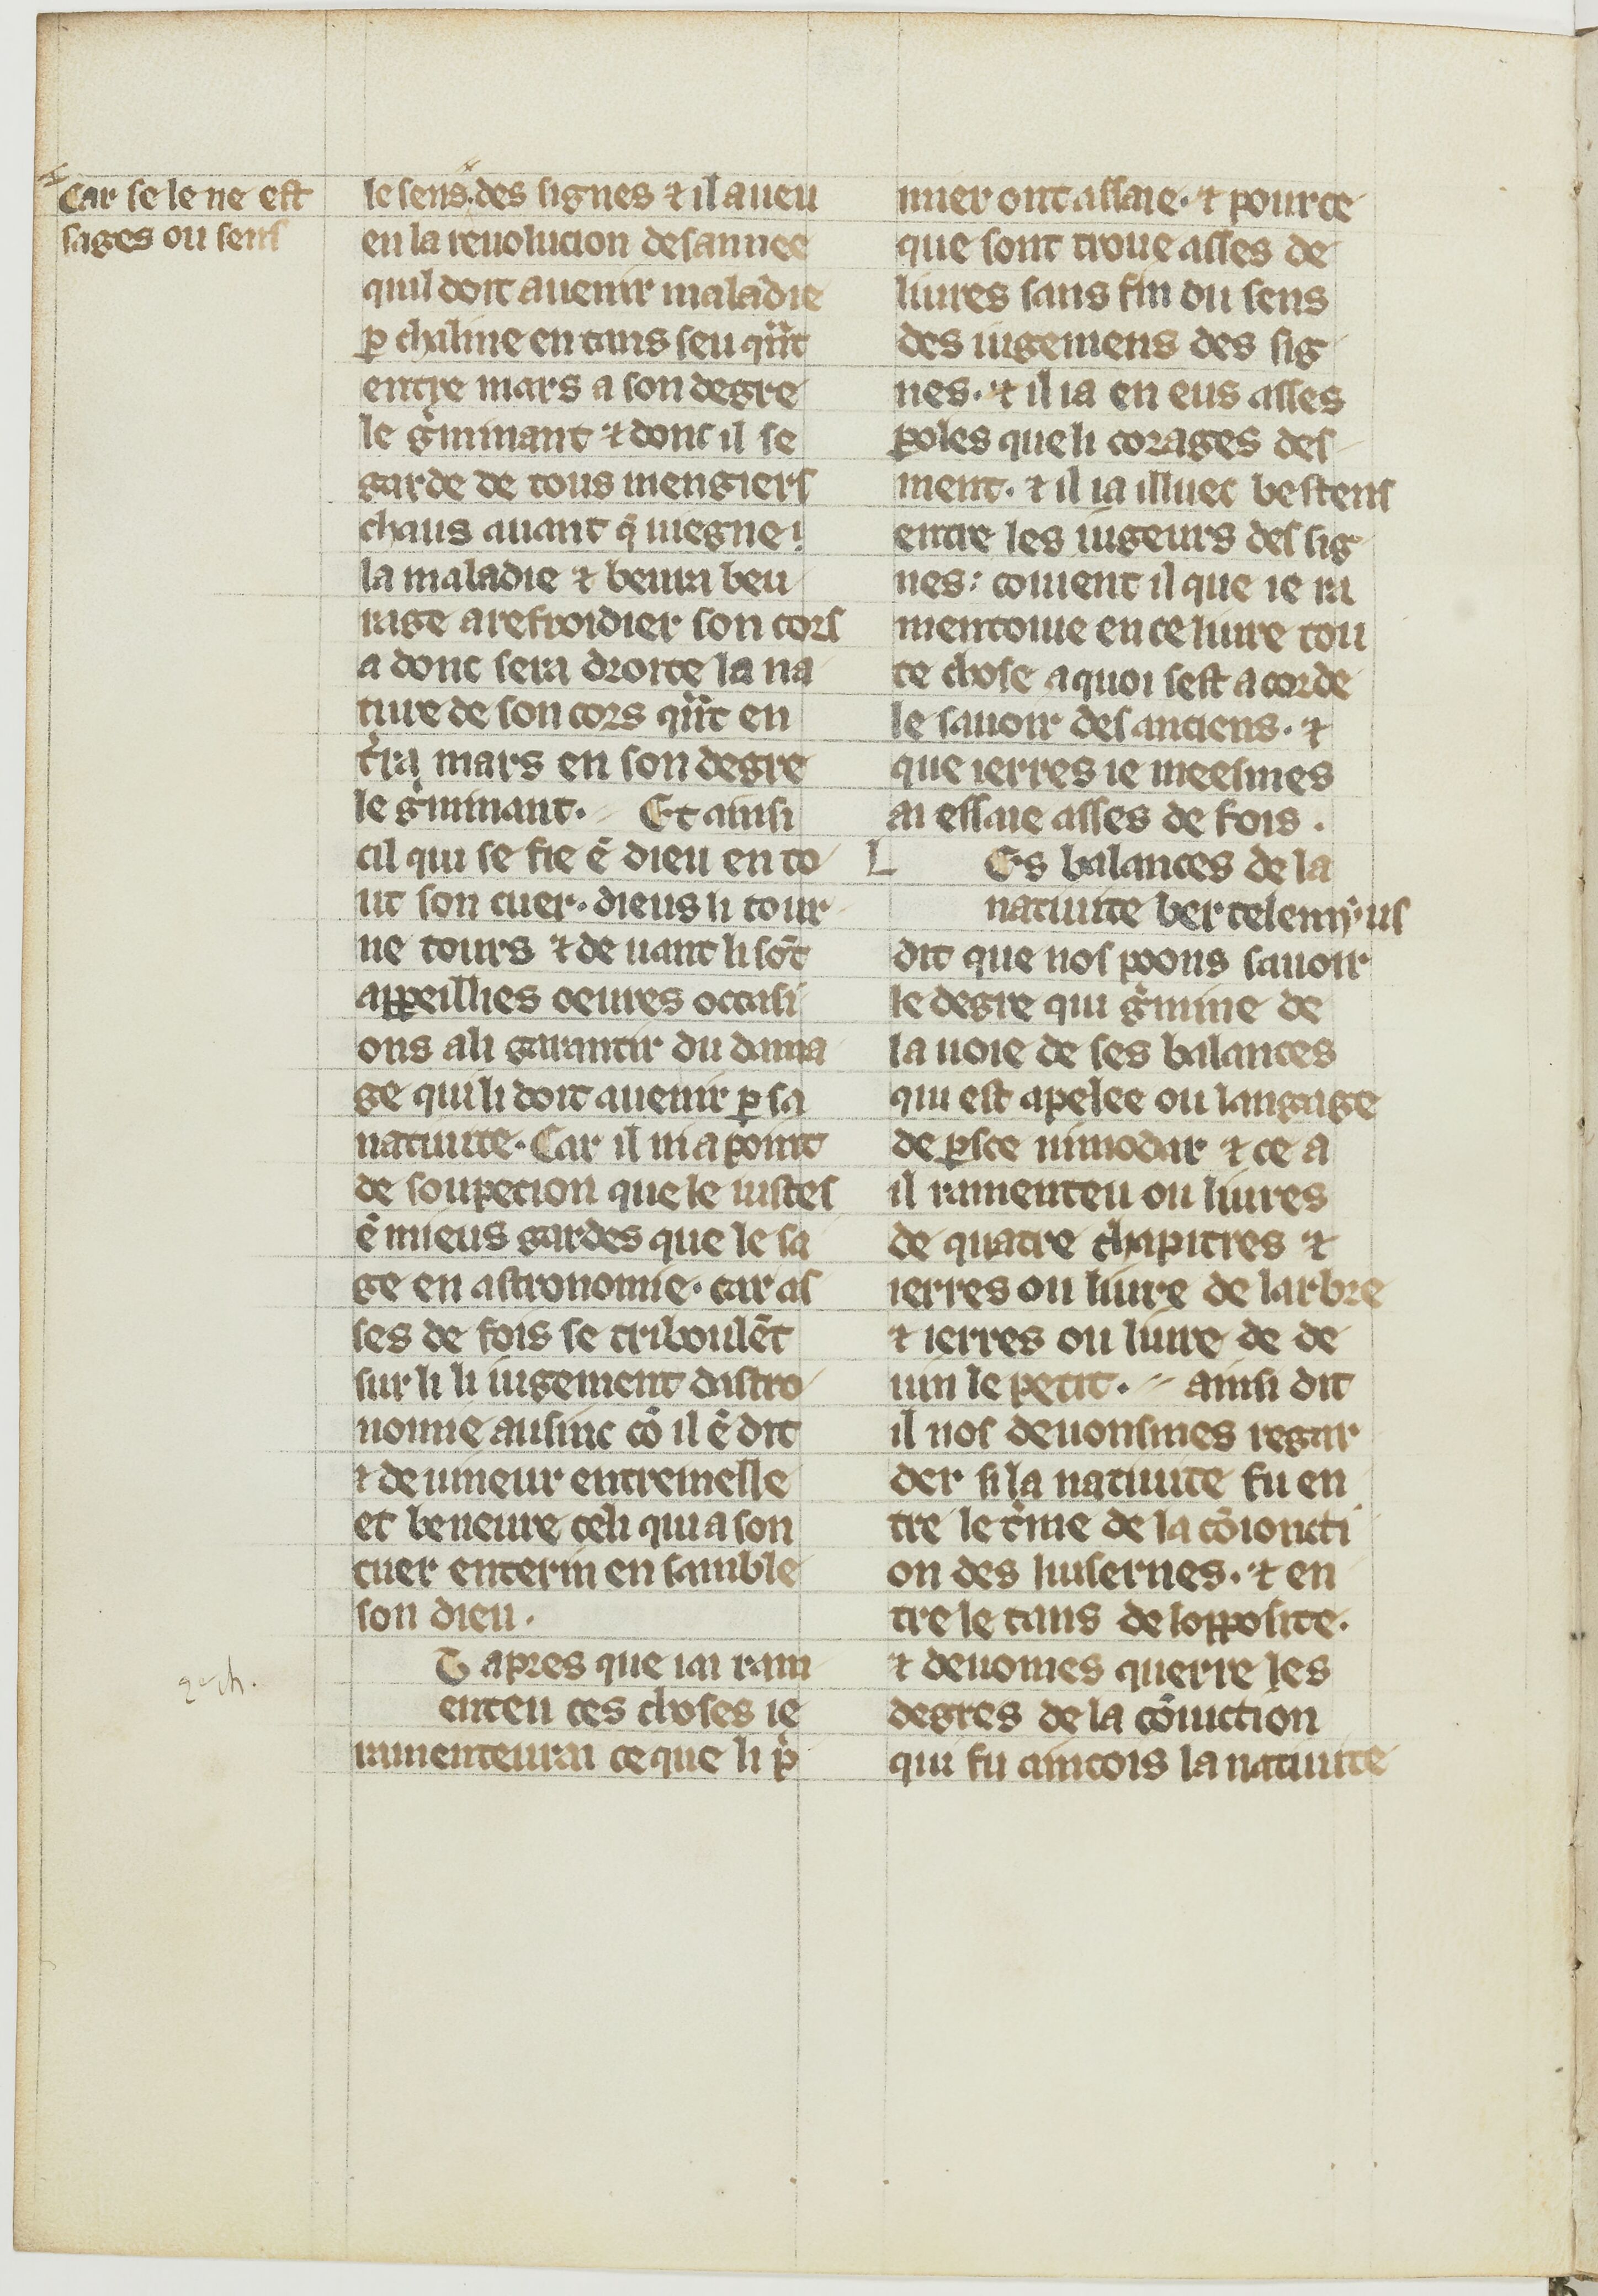 Car se le ne est
sages ou sens
le sens des signes ⁊ il a ueu
en la reuolucion de sannee
quil doit auenir maladie
ꝑ chaline en tans seu qn̄t
entre mars a son degre
le g̾minant ⁊ donc il se
garde de tous mengiers
chaus auant q̄ uiegne
la maladie ⁊ beura beu
rage a refroidier son cors
a donc sera droite la na
ture de son cors qn̄t en
t̾ra mars en son degre
le g̾minant. Et ainsi
cil qui se fie ē dieu en to
ut son cuer. dieus li tour
ne tours ⁊ de uant li sōt
appeillies oeures occasi
ons a li garantir du dama
ge qui li doit auenir ꝑ sa
natiuite. Car il ni a point
de soupecion que le iustes
ē mieus gardes que le sa
ge en astronomie. car as
ses de fois se triboulēt
sur li li iugement dastro
nomie ausinc cō il ē dit
⁊ de umeur entremesse
et beneure celi qui a son
cuer enterin en samble
son dieu.
Et apres que iai ram
enteu ces choses ie
ramenteurai ce que li p̾
mier ont assaie. ⁊ pour ce
que sont troue asses de
liures sans fin ou sens
des iugemens des sig
nes. ⁊ il ia en eus asses
poles que li corages des
ment. ⁊ il ia illuec bestens
entre les iugeurs des sig
nes: couient il que ie ra
mentoiue en ce liure tou
te chose a quoi sest acorde
le sauoir des anciens. ⁊
que ierres ie meesmes
ai essaie asses de fois.
L Es balances de la
natiuite bertelemy9us
dit que nos poons sauoir
le degre qui g̾mine de
la uoie de ses balances
qui est apelee ou langage
de ꝑsce nimodar ⁊ ce a
il ramenteu ou liures
de quatre chapitres ⁊
ierres ou liure de larbre
⁊ ierres ou liure de de
uin le petit. ainsi dit
il nos deuonsmes regar
der si la natiuite fu en
tre le t̾me de la cōioncti
on des luisernes. ⁊ en
tre le tans de lopposite.
⁊ deuomes querre les
degres de la cōiuction
qui fu aincois la natiuite
2e ch.